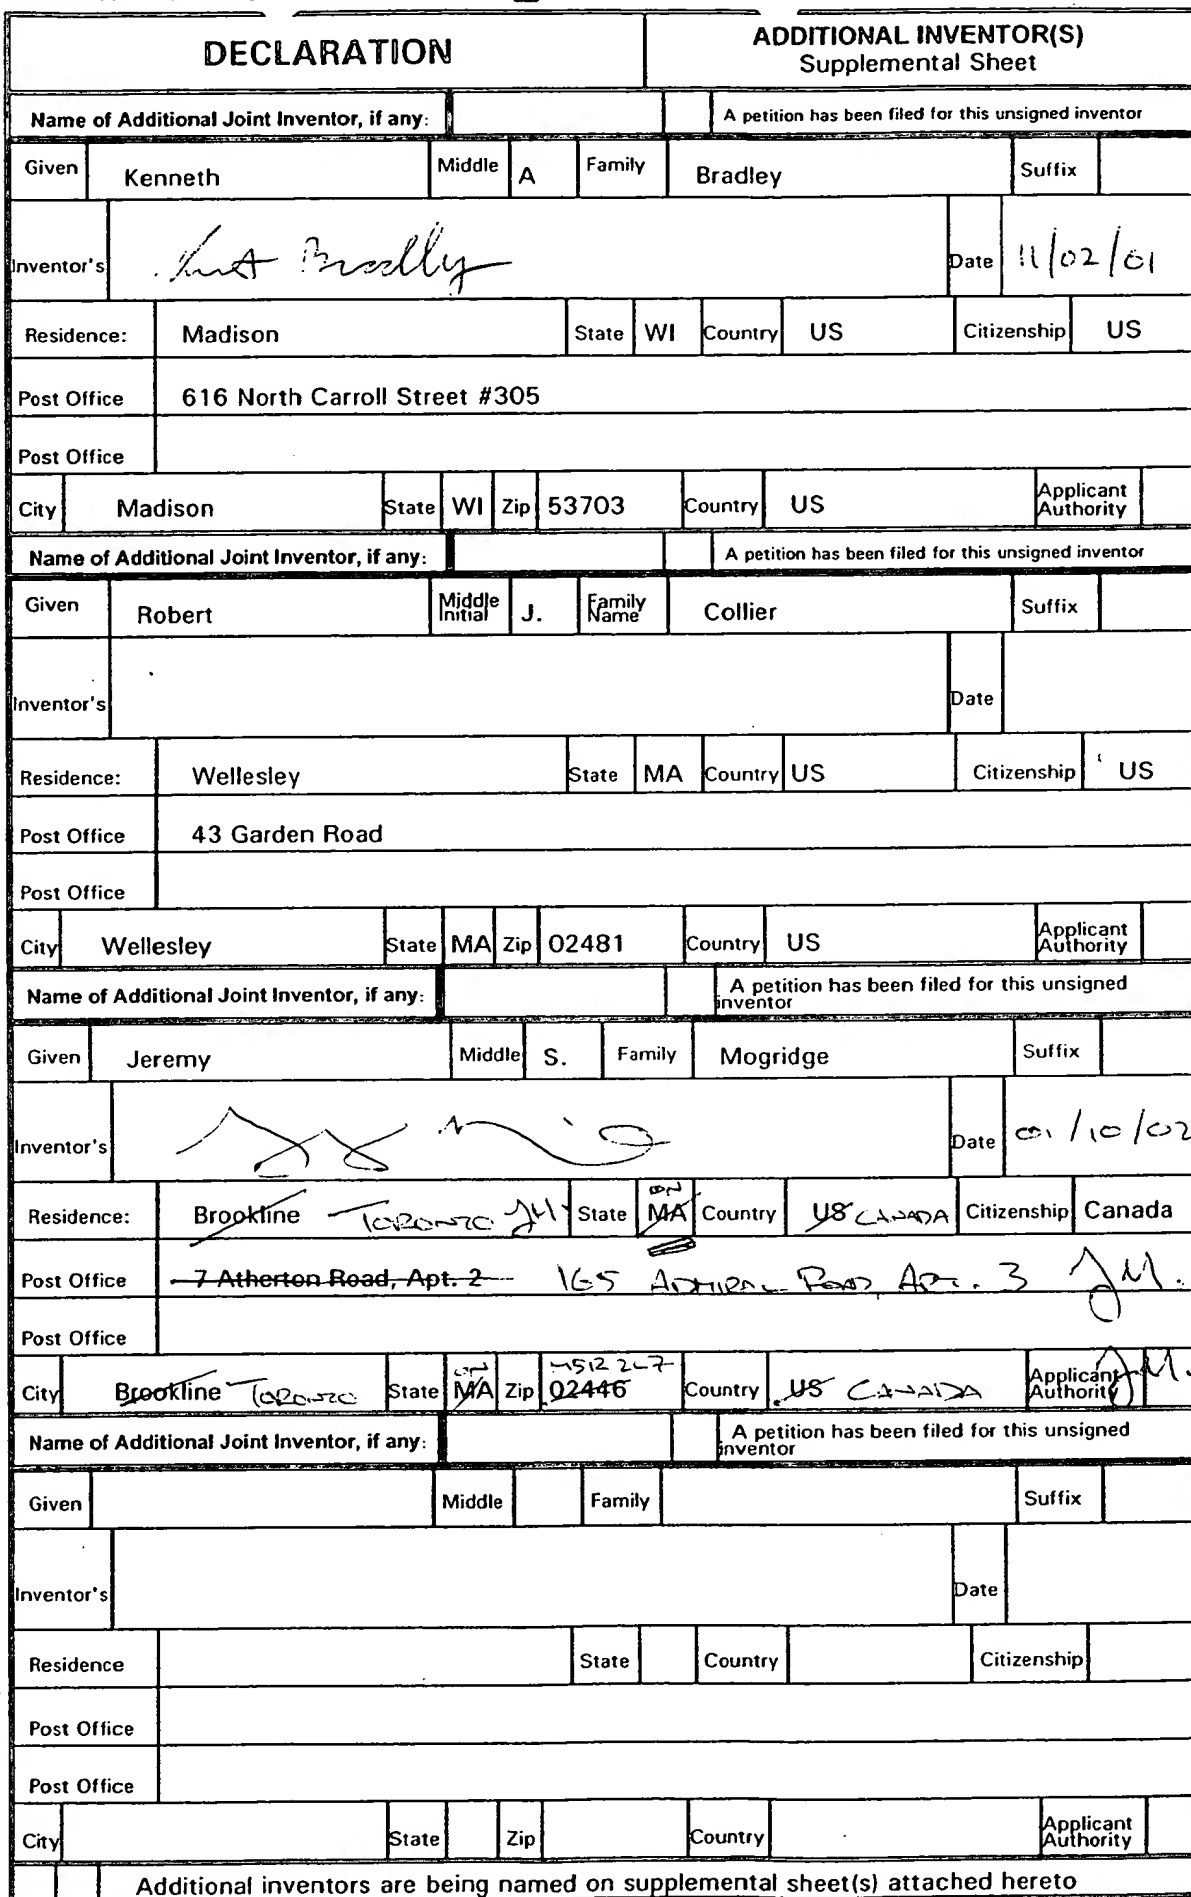 DECLARATION ADDITIONAL INVENTOR(S)
Supplemental Sheet
Name of Additional Joint Inventor, if any: A petition has been filed for this unsigned inventor
Given Kenneth Middle A Family Bradley Suffix
Inventor's Date 11/02/01
Residence: Madison State WI Country US Citizenship US
Post Office 616 North Carroll Street #305
Post Office
City Madison State WI Zip 53703 Country US Applicant Authority
Name of Additional Joint Inventor, if any: A petition has been filed for this unsigned inventor
Given Robert Middle Initial J. Family Name Collier Suffix
Inventor's Date
Residence: Wellesley State MA Country US Citizenship US
Post Office 43 Garden Road
Post Office
City Wellesley State MA Zip 02481 Country US Applicant Authority
Name of Additional Joint Inventor, if any: A petition has been filed for this unsigned inventor
Given Jeremy Middle S. Family Mogridge Suffix
Inventor's Date 01/10/02
Residence: Brookline TORONTO JM State MA ON Country US CANADA Citizenship Canada
Post Office 7 Atherton Road, Apt. 2 165 ADMIRAL ROAD, APT. 3 JM.
Post Office
City Brookline TORONTO State MA ON Zip 02446 Country US CANADA Applicant Authority JM.
Name of Additional Joint Inventor, if any: A petition has been filed for this unsigned inventor
Given Middle Family Suffix
Inventor's Date
Residence State Country Citizenship
Post Office
Post Office
City State Zip Country Applicant Authority
Additional inventors are being named on supplemental sheet(s) attached hereto